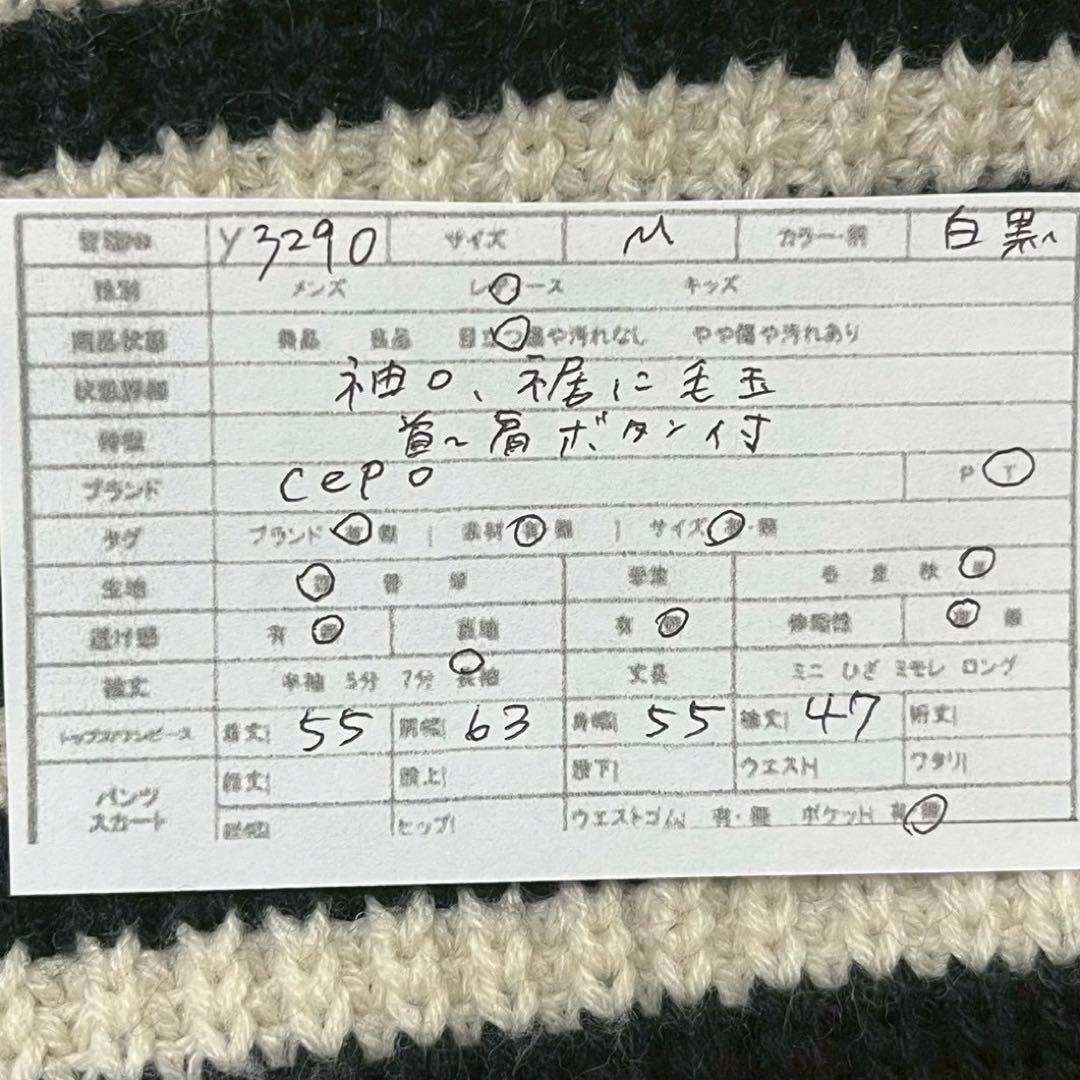 管理No Y3290 サイズ M カラー・柄 白黒
性別 メンズ レディース キッズ
商品状態 美品 良品 目立つ傷や汚れなし やや傷や汚れあり
状態詳細 袖口、裾に毛玉
特徴 首~肩ボタン付
ブランド cepo P T
タグ ブランド 有 無 | 素材 有・無 | サイズ 有・無
生地 厚 普 薄 季節 春 夏 秋 冬
透け感 有 無 裏地 有 無 伸縮性 有 無
袖丈 半袖 5分 7分 長袖 丈長 ミニ ひざ ミモレ ロング
トップス/ワンピース 着丈| 55 肩幅| 63 身幅| 55 袖丈| 47 裄丈|
パンツ スカート 総丈| 股上| 股下| ウエスト| ワタリ|
裾幅 ヒップ| ウエストゴム 有・無 ポケット 有 無